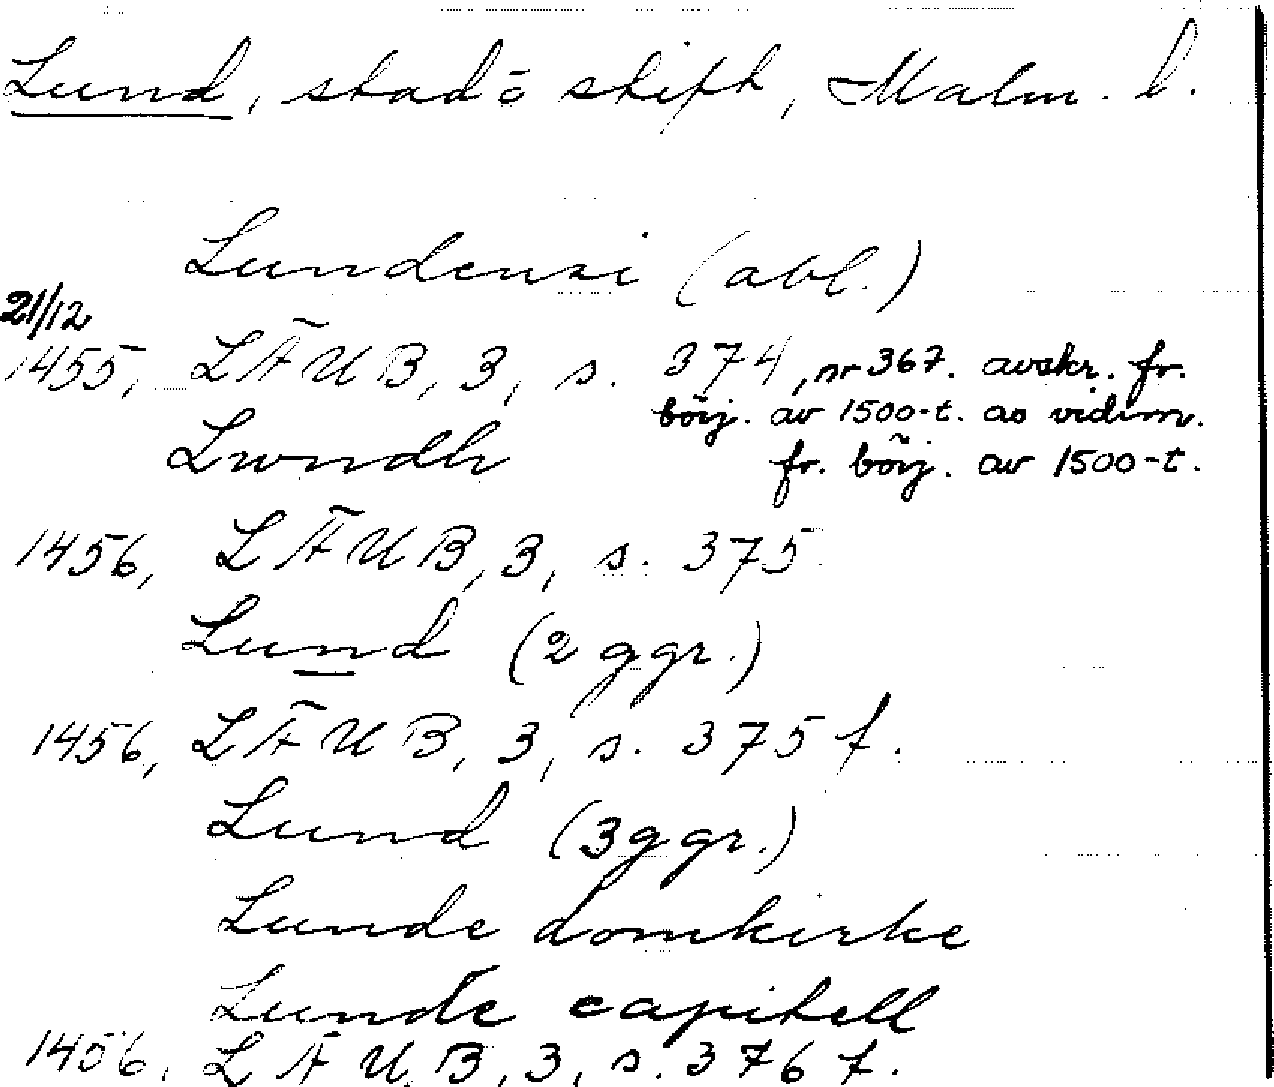 Lund, stad o stift, Malm. l.
Lundensi (abl.)
21/12
1455, LÄUB, 3, s. 374, nr 367. avskr. fr.
börj. av 1500-t. ao vidim.
Lwndh fr. börj. av 1500-t.
1456, LÄUB, 3, s. 375
Lund (2 ggr.)
1456, LÄUB, 3, s. 375 f.
Lund (3 ggr.)
Lunde domkirke
Lunde capitell
1456, LÄUB, 3, s. 376 f.